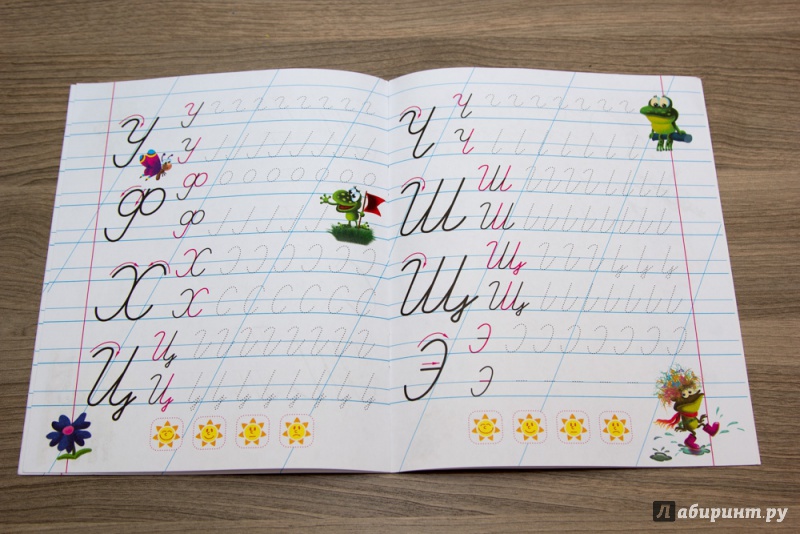 У У
У
Ф Ф
Ф
Х Х
Х
Ц Ц
Ц
Ч Ч
Ч
Ш Ш
Ш
Щ Щ
Щ
Э Э
Э
Лабиринт.ру